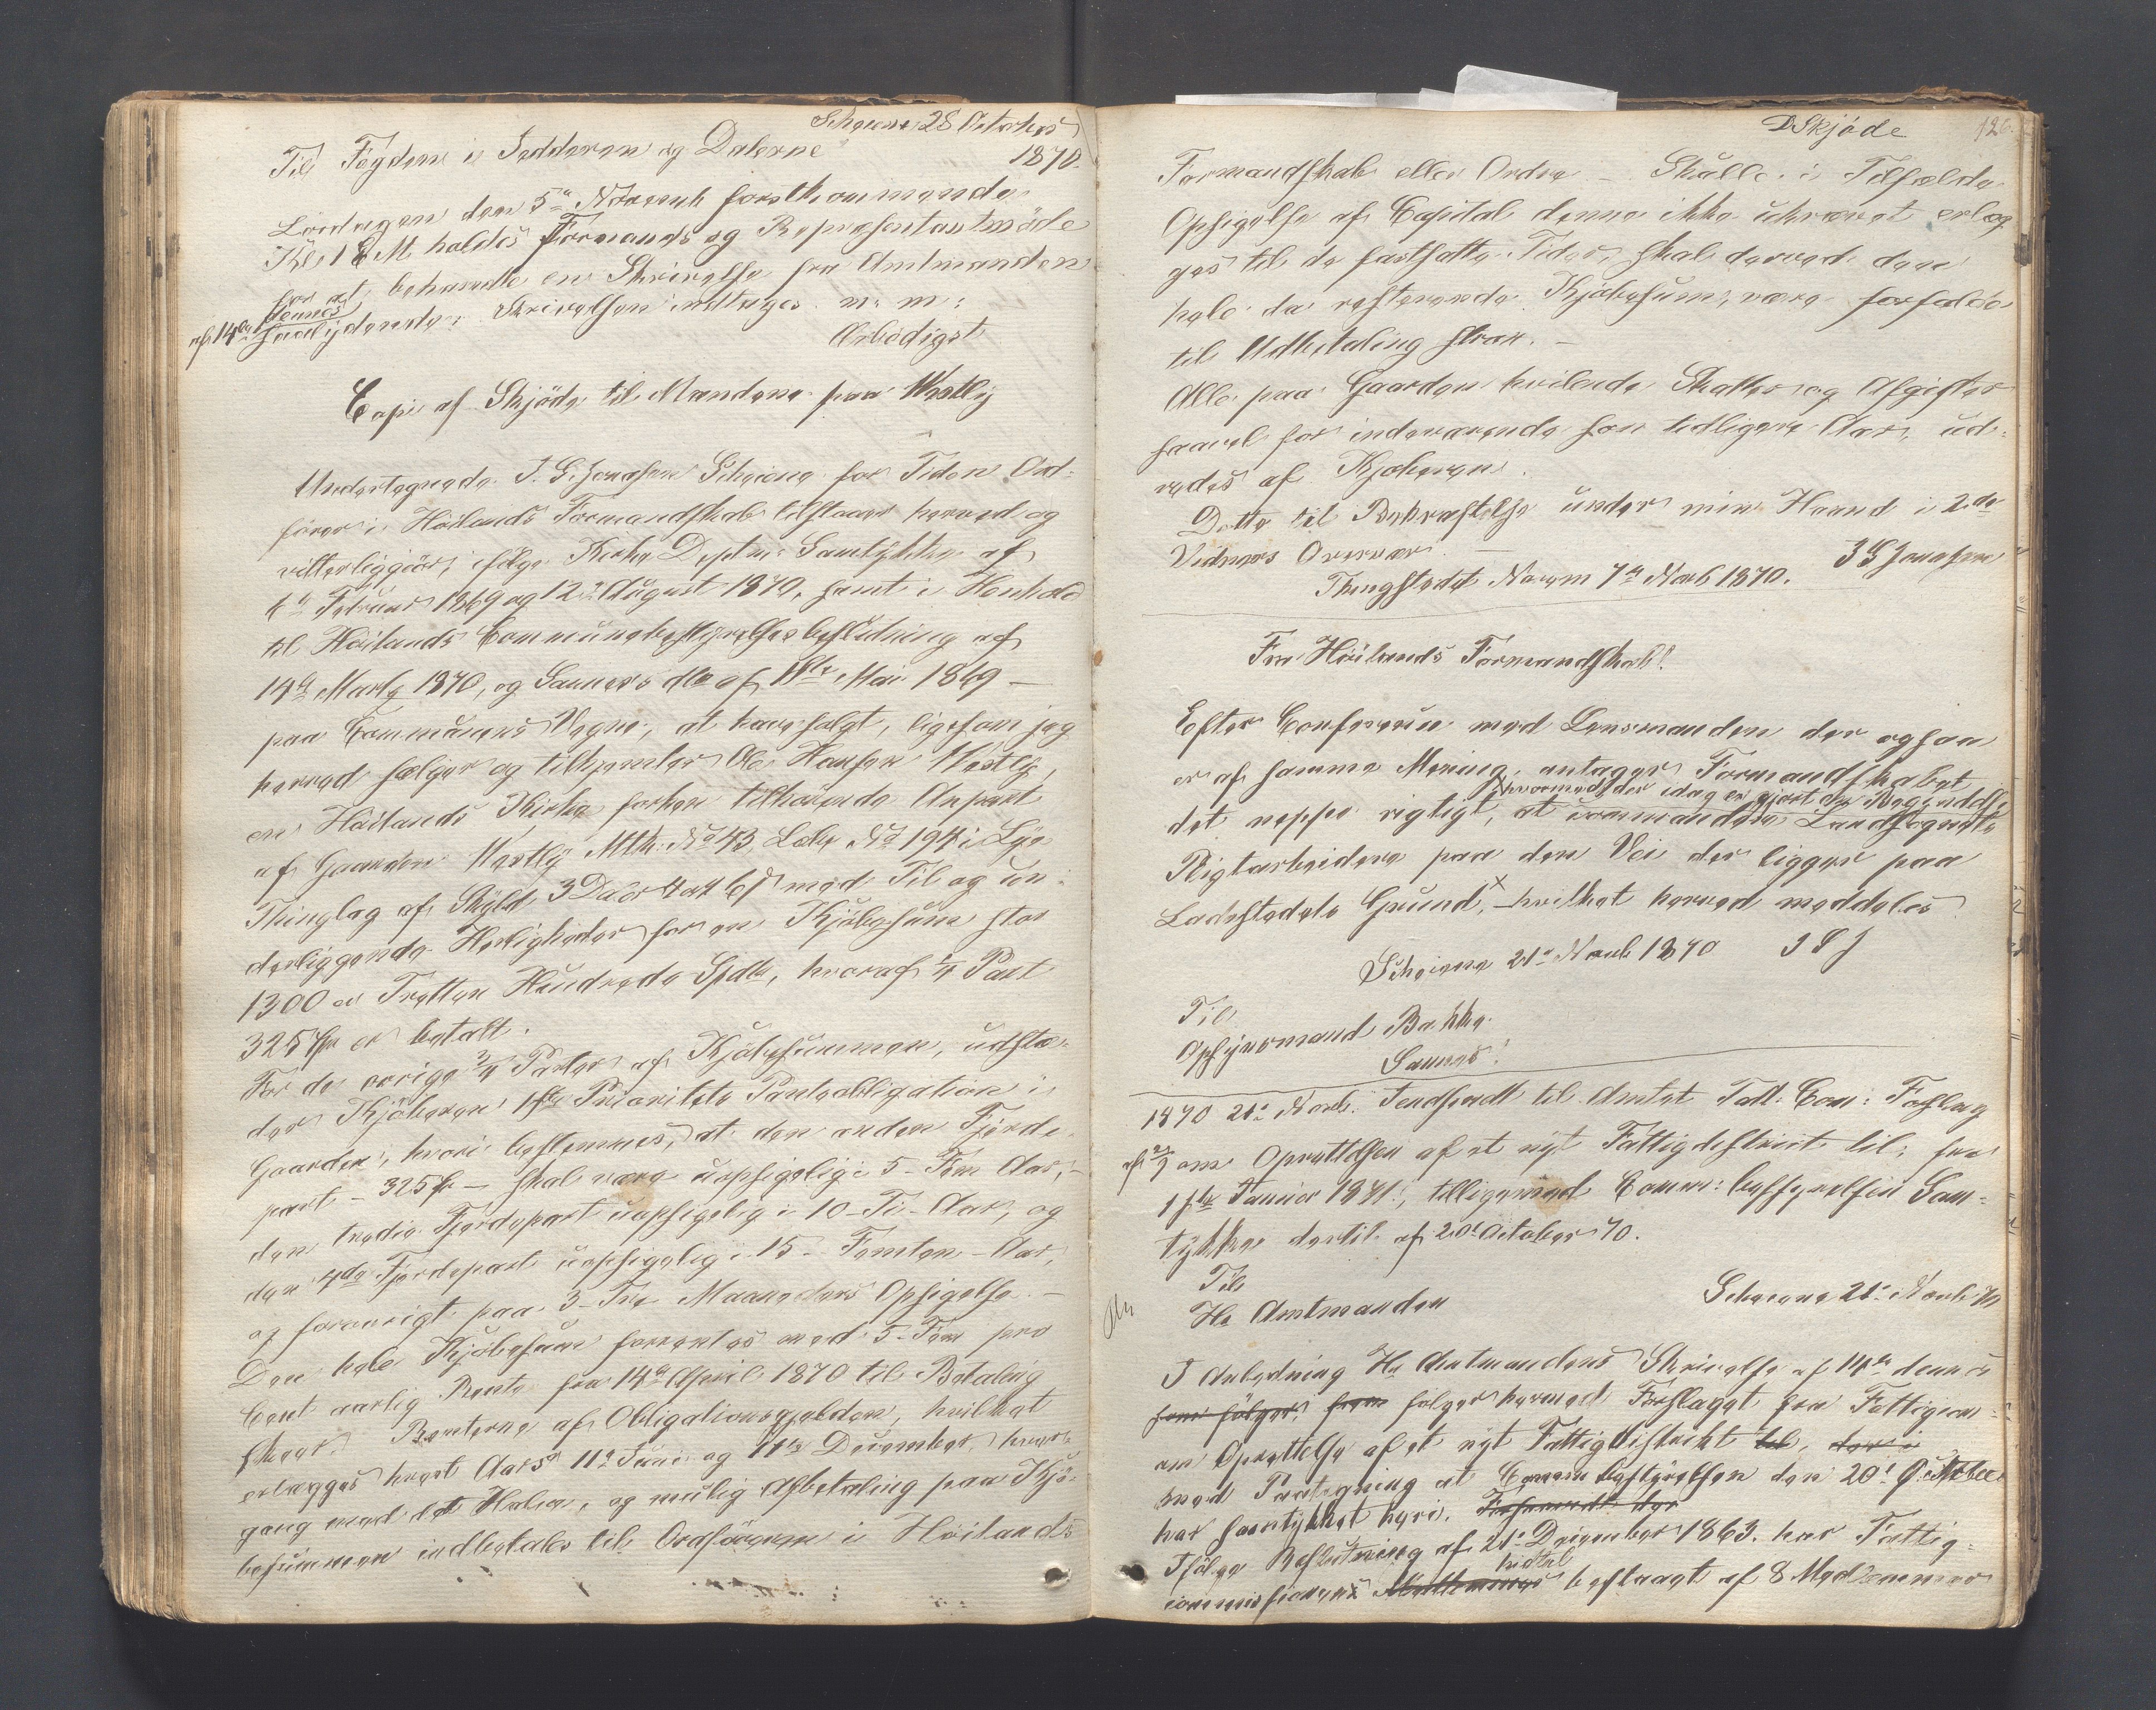 Scheiene 28 October
Til Fogden i Jedderen og Dalerne 1870.
Löverdagen den 5te Novemb förstkommende
Kl. 1 E M. holdes Formands og Repræsentantmøde
for at behandle en Skrivelse fra Amtmanden
af 14de dennes
saalydende: Skrivelsen indtages m: m:
Ærbödigst
Copi af Skjöde til Mandene paa Westly
Undertegnede J. G. Jonassen Scheiene for Tiden Ord-
förer i Höilands Formandskab tilstaaer herved og
vitterliggiör, ifölge Kirke Deptm: Samtykke af
Februar 1869 og 12te August 1870, samt i Henhold
til Höilands Communebestyrelses beslutning af
19de Marts 1870, og Sannæs do af Mai 1869 –
paa Communens Vegne, at have solgt, ligesom jeg
herved sælger og tilskjemter Ole Hansen Westly,
en Höilands Kirke forhen tilhörende Anpart
af Gaarden Westly Mtk. No 43, Löbe No 194 i Lye
Thinglag af Skyld 3 Daler 4 ort 6 s med Til og un-
derliggende Herligheder for en Kjöbesum stor
1300 er Tretten Hundrede Spdlr, hvoraf 1/4 Part
325 Spd er betalt.
For de övrige 3/4 Parter af Kjöbesummen, udste-
der Kjöberen 1ste Prioritets Panteobligation i
Gaarden, hvori bestemmes, at den anden Fjerde-
part – 325 Spd – skal være uopsigelig i 5 – Fem Aar, –
den tredie Fjerdepart uopsigelig i 10 – Ti – Aar, og
den 4de Fjerdepart uopsigelig i 15 – Femten – Aar,
og forövrigt paa 3 – Tre Maaneders Opsigelse. –
Den hele Kjöbesum forrentes med 5 – Fem pro
Cent aarlig Rente fra 14de April 1870 til Betaling
skeer. Renterne af Obligationsgjelden, hvilket
erlægges hvert Aars 11te Juni og 11te December, hver-
gang med det Halve, og mulig Afbetaling paa Kjö-
besummen indbetales til Ordföreren i Höilands
Skjöde 126.
Formandskab eller Ordre – Skulle i Tilfælde
Opsigelse af Capital denne ikke uhævet erlæg-
ges til de fastsatte Tider, skal derved den
hele da resterende Kjöbesum, være forfalden
til Udbetaling strax. –
Alle paa Gaarden hvilende Skatter og Afgifter
saavel for indeværende som tidligere Aar, ud-
redes af Kjöberen.
Dette til Bekræftelse under min Haand i 2de
Vidners Overvær. –
Thingstedet Norem 7de Novb 1870. J G Jonassen
Fra Höilands Formandskab!
Efter Conference med Lensmanden der ogsaa
er af samme Mening, antager Formandskabet
hvormed der idag er gjort en Begyndelse
det neppe rigtigt, at commandere Landsognets
Pligtarbeidere paa den Vei der ligger paa
Ladestedets Grund, × – hvilket herved meddeles
Scheiene 21de Novb 1870 J G J
Til
Opsynsmand Bakke
Sannæs!
1870 21de Novb. Tendsendt til Amtet Fatt: Com: Forslag
af 2/9 om Oprettelsen af et nyt Fattigdistrict til: fra
1ste Januar 1871, tilligemed Comm: bestyrelsens Sam-
tykke dertil af 20de October 70.
Til
Hr Amtmanden Scheiene 21de Novb 70
I Anledning Hr Amtmandens Skrivelse af 14de dennes
som fölger, fölger hermed Forslaget fra Fattigcom-
om Oprettelse af et nyt Fattigdistrikt til, der i
med Paategning at Comm bestyrelsen den 20de October
har samtykket heri.
Ifölge Beslutning af 21de December 1863 har Fattig-
hidtil
commissionen bestaaet af 8 Medlemmer